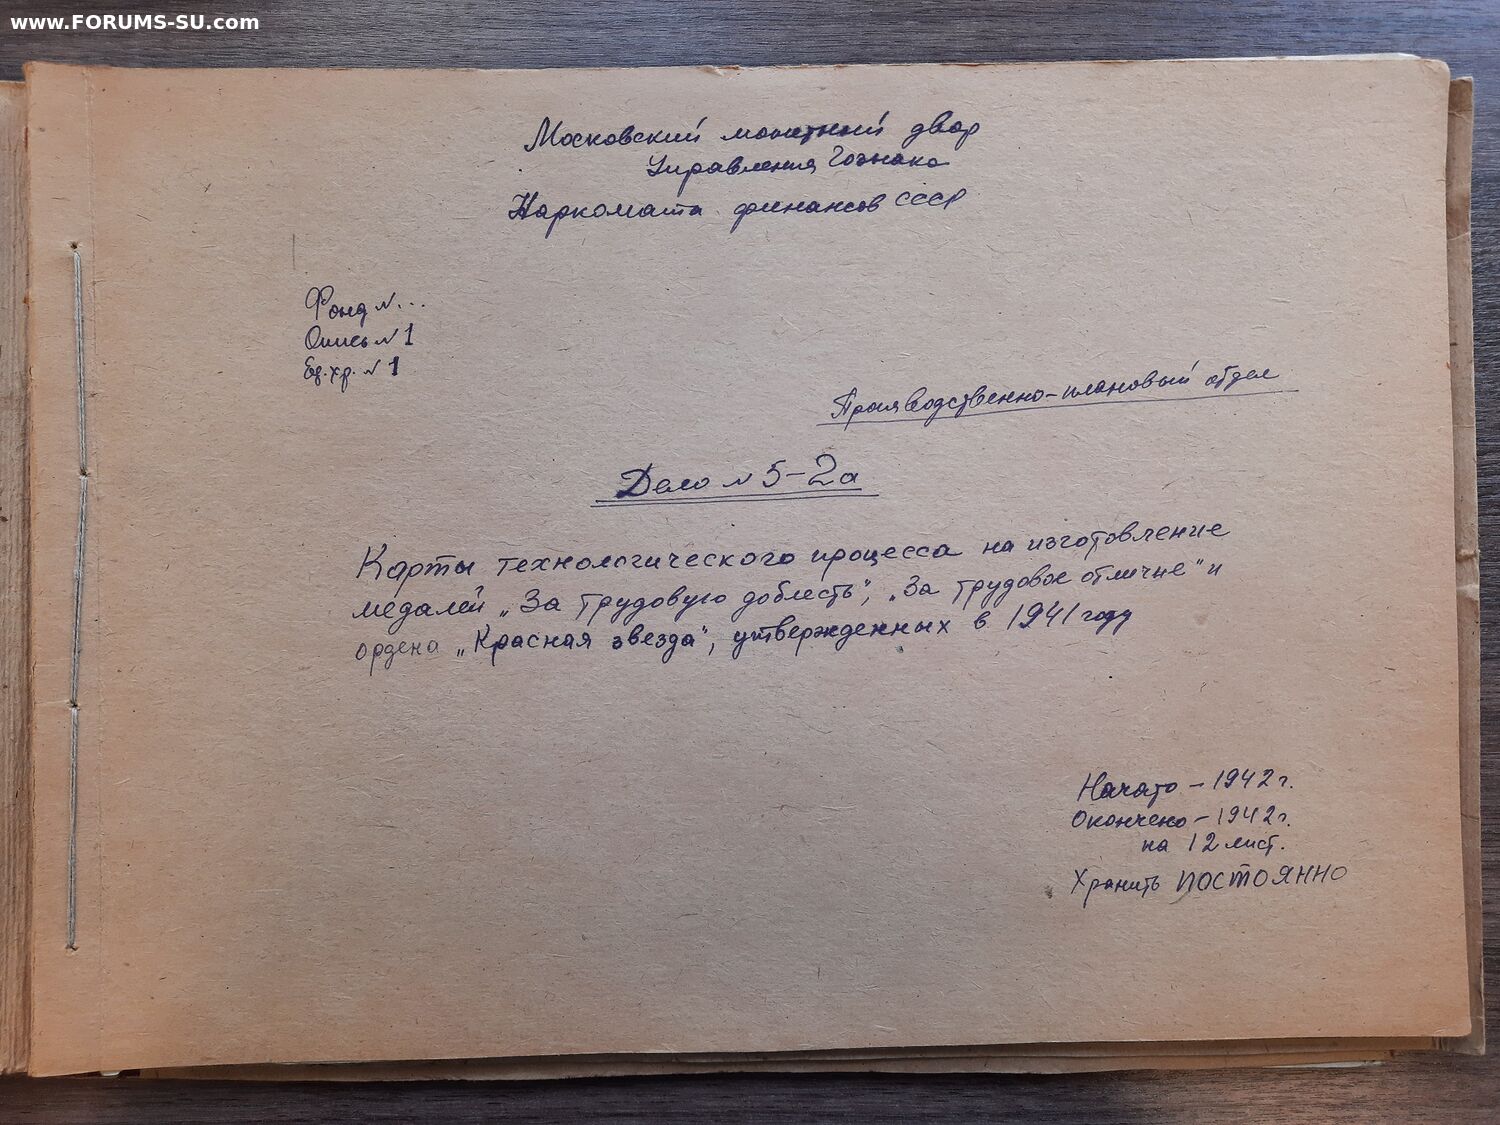 www.FORUMS-SU.com
Московский монетный двор
Управления Гознака
Наркомата финансов СССР
Фонд N...
Опись N 1
Ед. хр. N 1
Производственно-плановый отдел
Дело N 5-2а
Карты технологического процесса на изготовление
медалей „За трудовую доблесть", „За трудовое отличие" и
ордена „Красная звезда", утвержденных в 1941 году
Начато - 1942 г.
Окончено - 1942 г.
на 12 лист.
Хранить ПОСТОЯННО